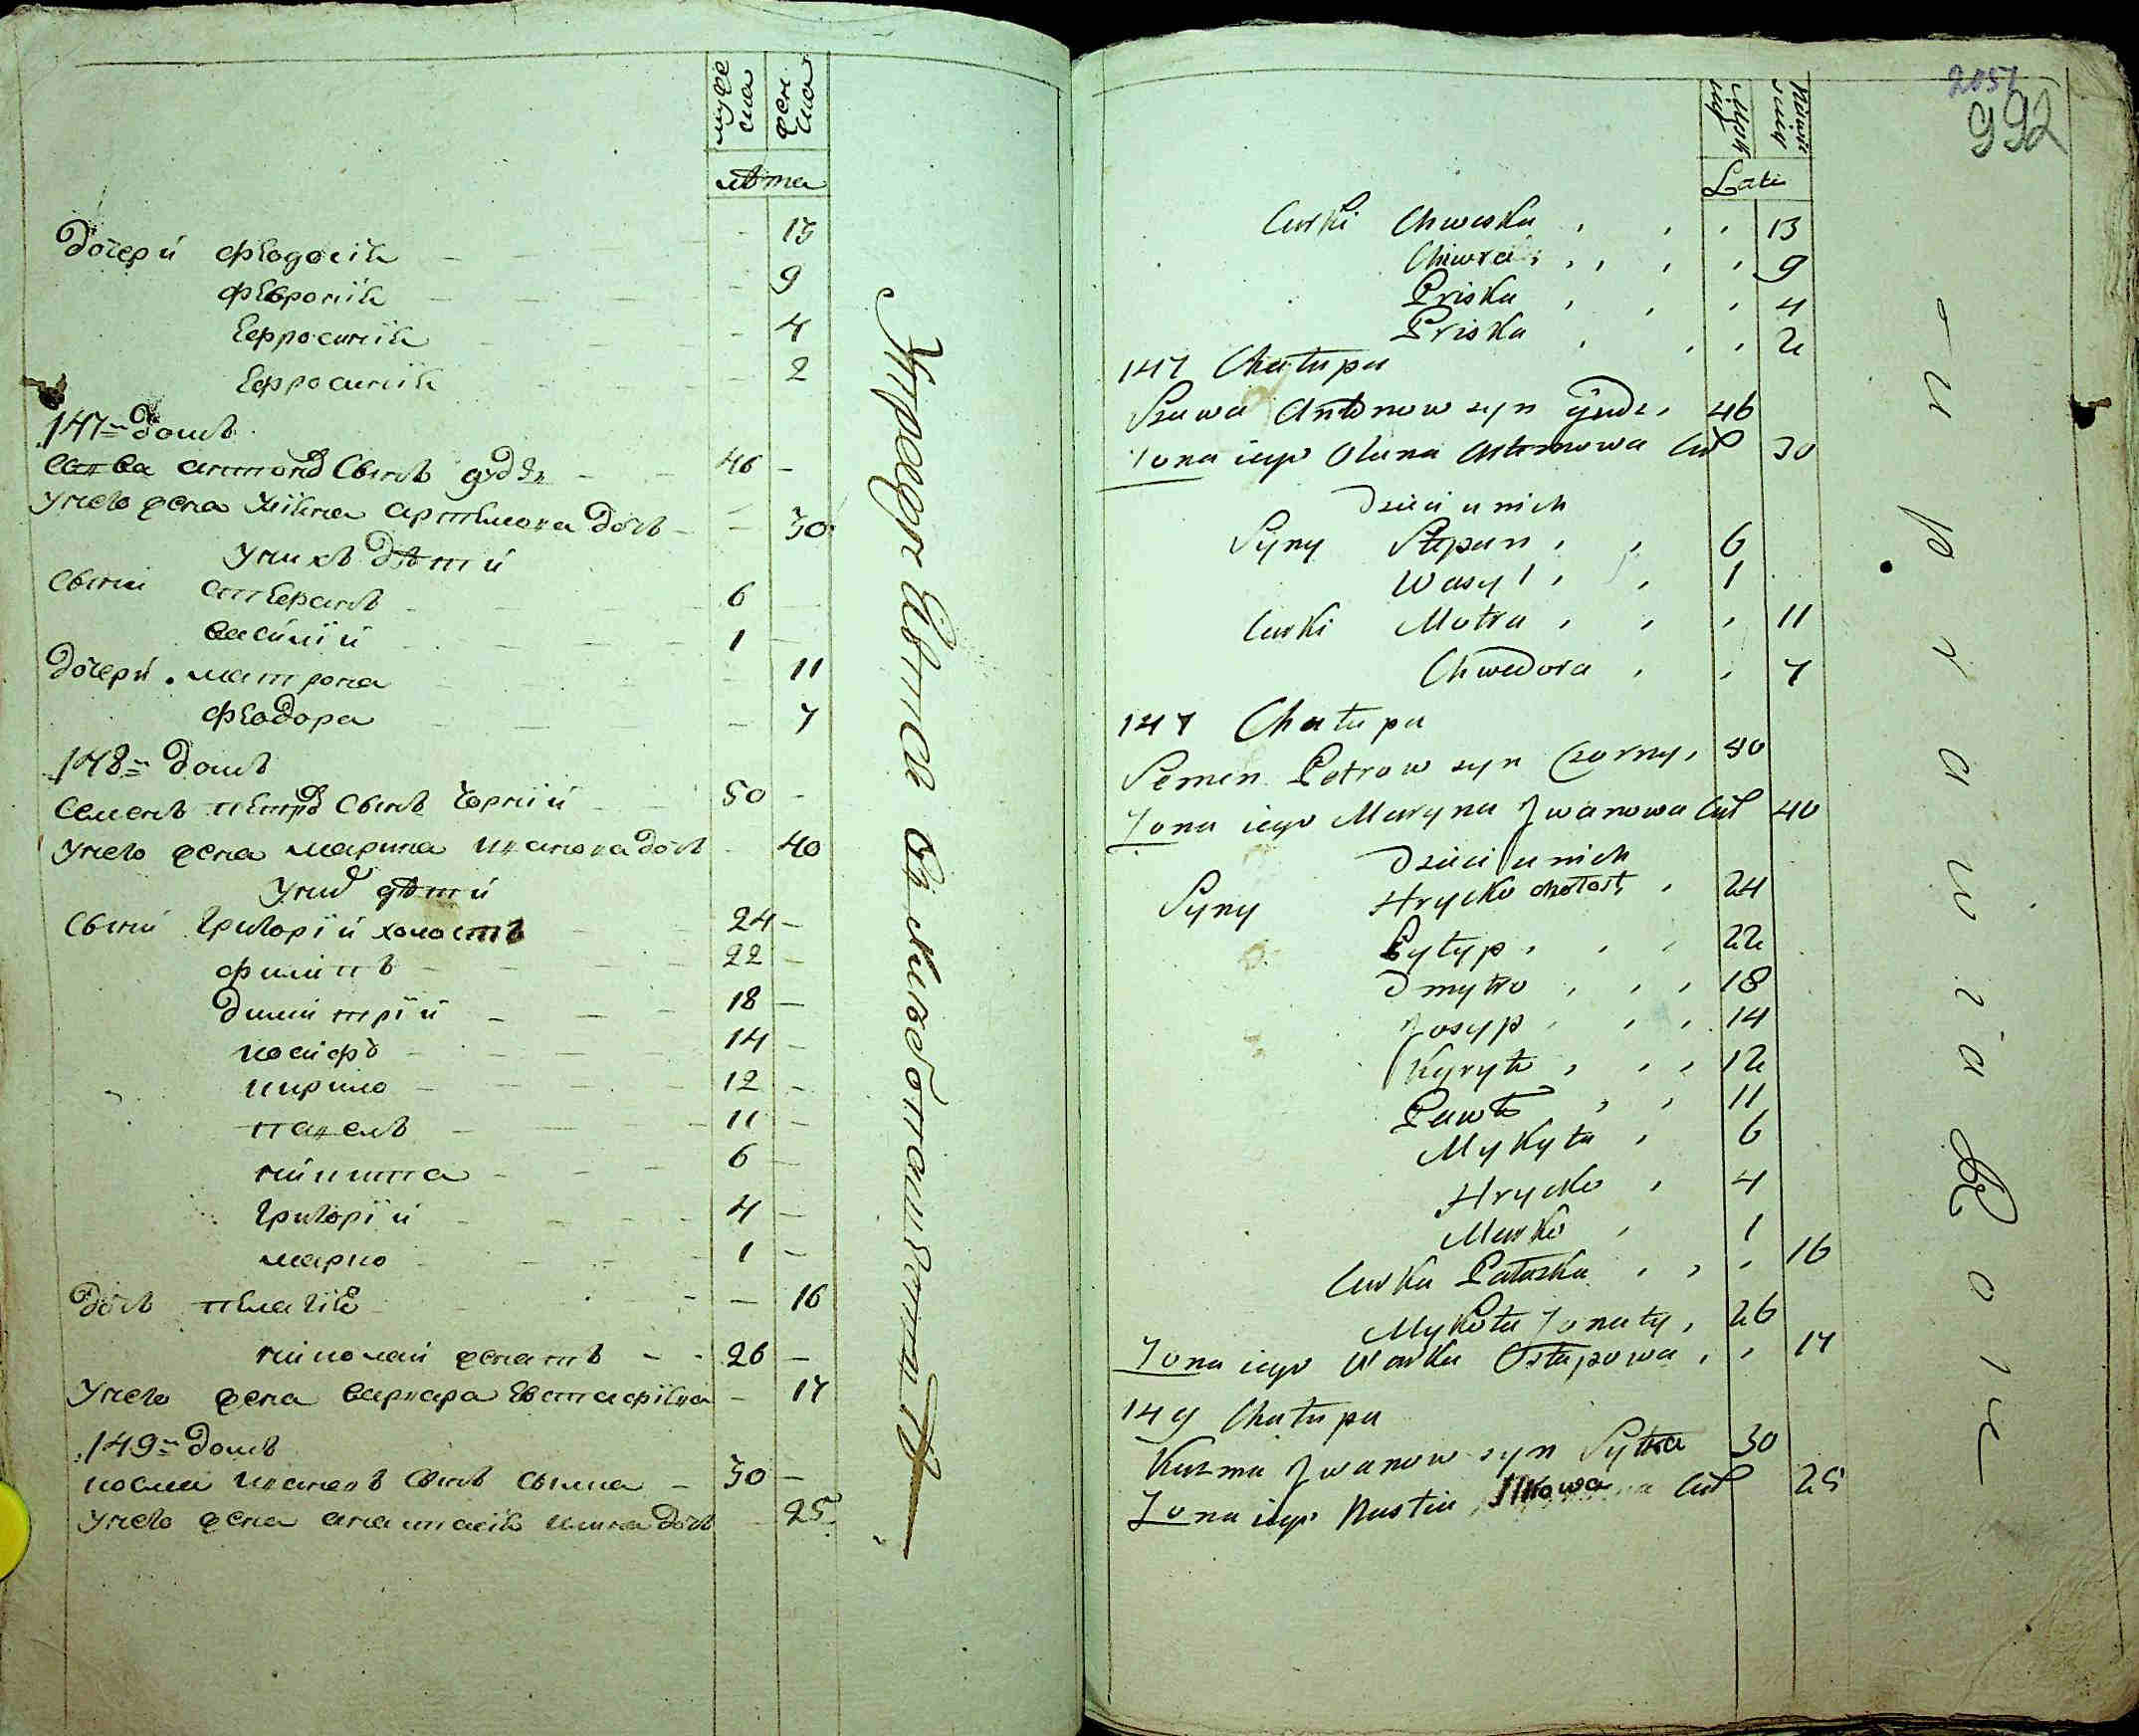 муже
ска
жен
ска
лѣта
Дочери Феодосія - 13
Феѵронія - 9
Ефросинія - 4
Ефросинія - 2
147 Домъ
Савва антоновъ Сынъ дудзь - 46 -
Унего жена Уліяна артемова дочь - 30
Унихъ Дѣти
Сыни стефанъ 6
василій 1
Дочери матрона - 11
Феодора - 7
148 Домъ
Семенъ петровъ Сынъ Чорній 50 -
Унего жена марина иванова дочь - 40
Унихъ дѣти
Сыни Григорій холостъ 24 -
филипъ 22 -
Димитрій 18 -
иосифъ 14 -
кирило 12 -
павелъ 11 -
никита 6 -
Григорій 4 -
марко 1 -
Дочь пелагія - 16
николай женатъ 26 -
Унего жена варвара Евстафіева - 17
149 Домъ
косма ивановъ Сынъ сытка - 30 -
Унего жена анастасія илкова дочь - 25
2051
992
Męsk
Lata
Curki Chweska 13
Chiwra 9
Priska 4
Priska 2
147 Chałupa
Sawa Antonow syn 46
Żona iego Olana Artemowa Cór 30
Dzieci u nich
Syny Stepan 6
Wasyl 1
Curki Motra 11
Chwedora 7
147 Chałupa
Semen Petrow syn Czorny 50
Żona iego Maryna Jwanowa Cór 40
Dzieci u nich
Syny Hrycko chołost 24
Pyłyp 22
Dmytro 18
Josyp 14
Kyryło 12
Pawło 11
Mykyta 6
Hrycko 4
Marko 1
Curka Pałazka 16
Mykoła Żonaty 26
Żona iego Warka Ostapowa 17
149 Chałupa
Kuzma Jwanow syn Sytka 30
Żona iego Nastia Ilkowa Cór 25